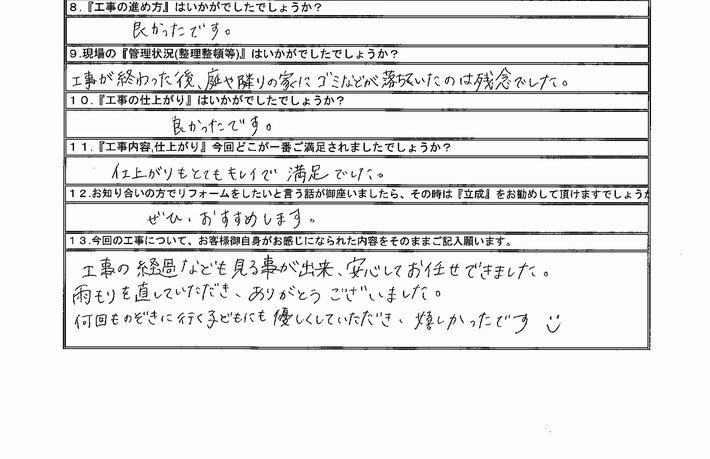 8.『工事の進め方』はいかがでしたでしょうか?
良かったです。
9.現場の『管理状況(整理整頓等)』はいかがでしたでしょうか?
工事が終わった後、庭や隣りの家にゴミなどが落ちていたのは残念でした。
10.『工事の仕上がり』はいかがでしたでしょうか?
良かったです。
11.『工事内容,仕上がり』今回どこが一番ご満足されましたでしょうか?
仕上がりもとてもキレイで満足でした。
12.お知り合いの方でリフォームをしたいと言う話が御座いましたら、その時は『立成』をお勧めして頂けますでしょうか
ぜひ、おすすめします。
13.今回の工事について、お客様御自身がお感じになられた内容をそのままご記入願います。
工事の経過なども見る事が出来、安心してお任せできました。
雨もりを直していただき、ありがとうございました。
何回ものぞきに行く子どもにも優しくしていただき、嬉しかったです